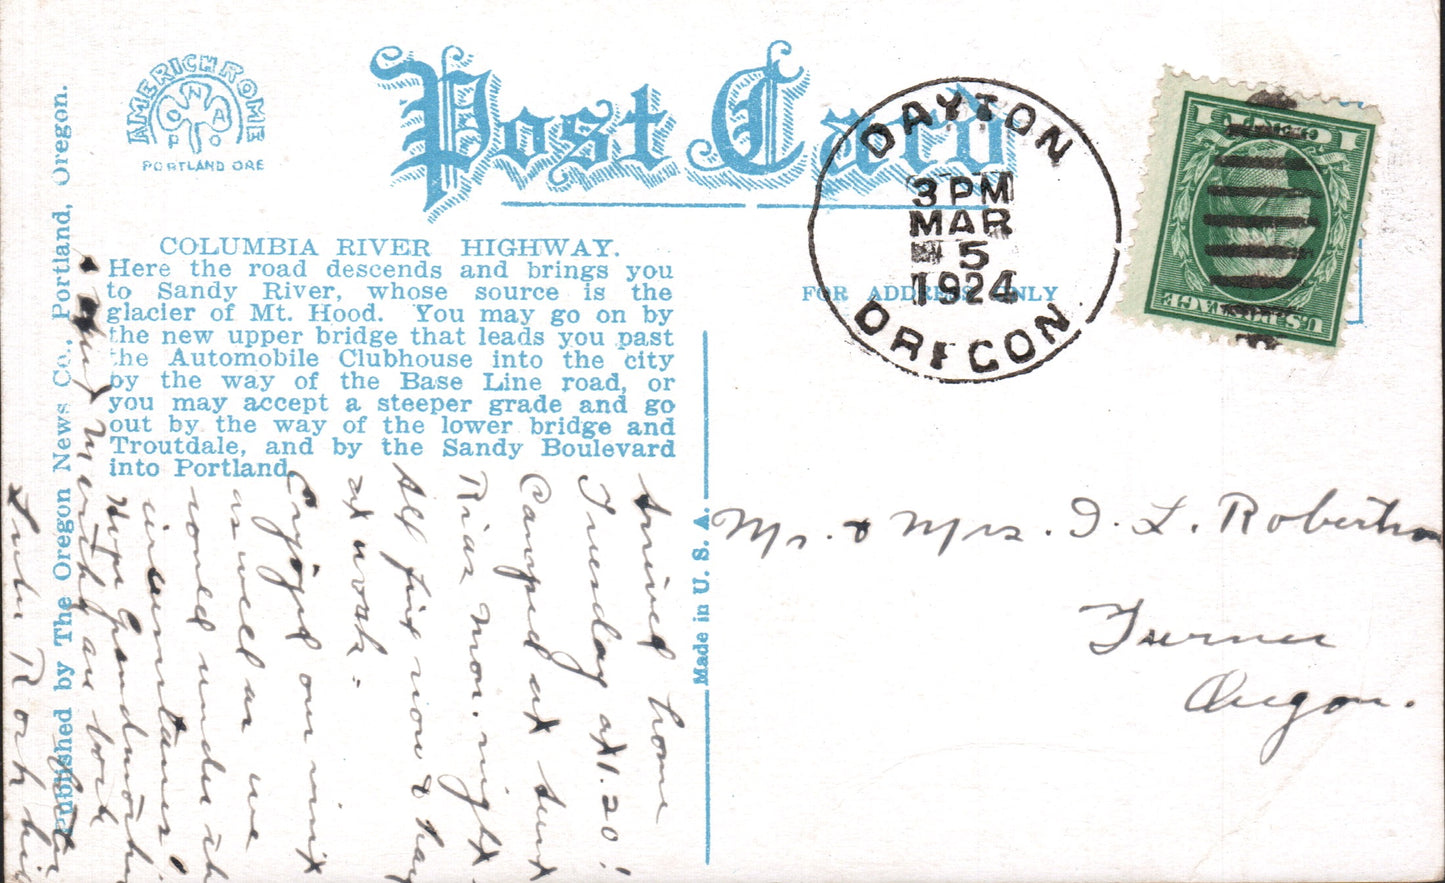 AMERICHROME
PONAPO
PORTLAND ORE
Post Card
DAYTON
3 PM
MAR
5
1924
OREGON
1 CENT 1
U.S. POSTAGE
COLUMBIA RIVER HIGHWAY.
Here the road descends and brings you
to Sandy River, whose source is the
glacier of Mt. Hood. You may go on by
the new upper bridge that leads you past
the Automobile Clubhouse into the city
by the way of the Base Line road, or
you may accept a steeper grade and go
out by the way of the lower bridge and
Troutdale, and by the Sandy Boulevard
into Portland.
FOR ADDRESS ONLY
Published by The Oregon News Co., Portland, Oregon.
Made in U. S. A.
Arrived home
Tuesday at 1.20!
Camped at
Mon. night
All fine now &
at work.
Enjoyed our visit
as well as we
could under
circumstances!
Hope Grandmother
and are
Mr. & Mrs. I. L. Robertson
Turner
Oregon.